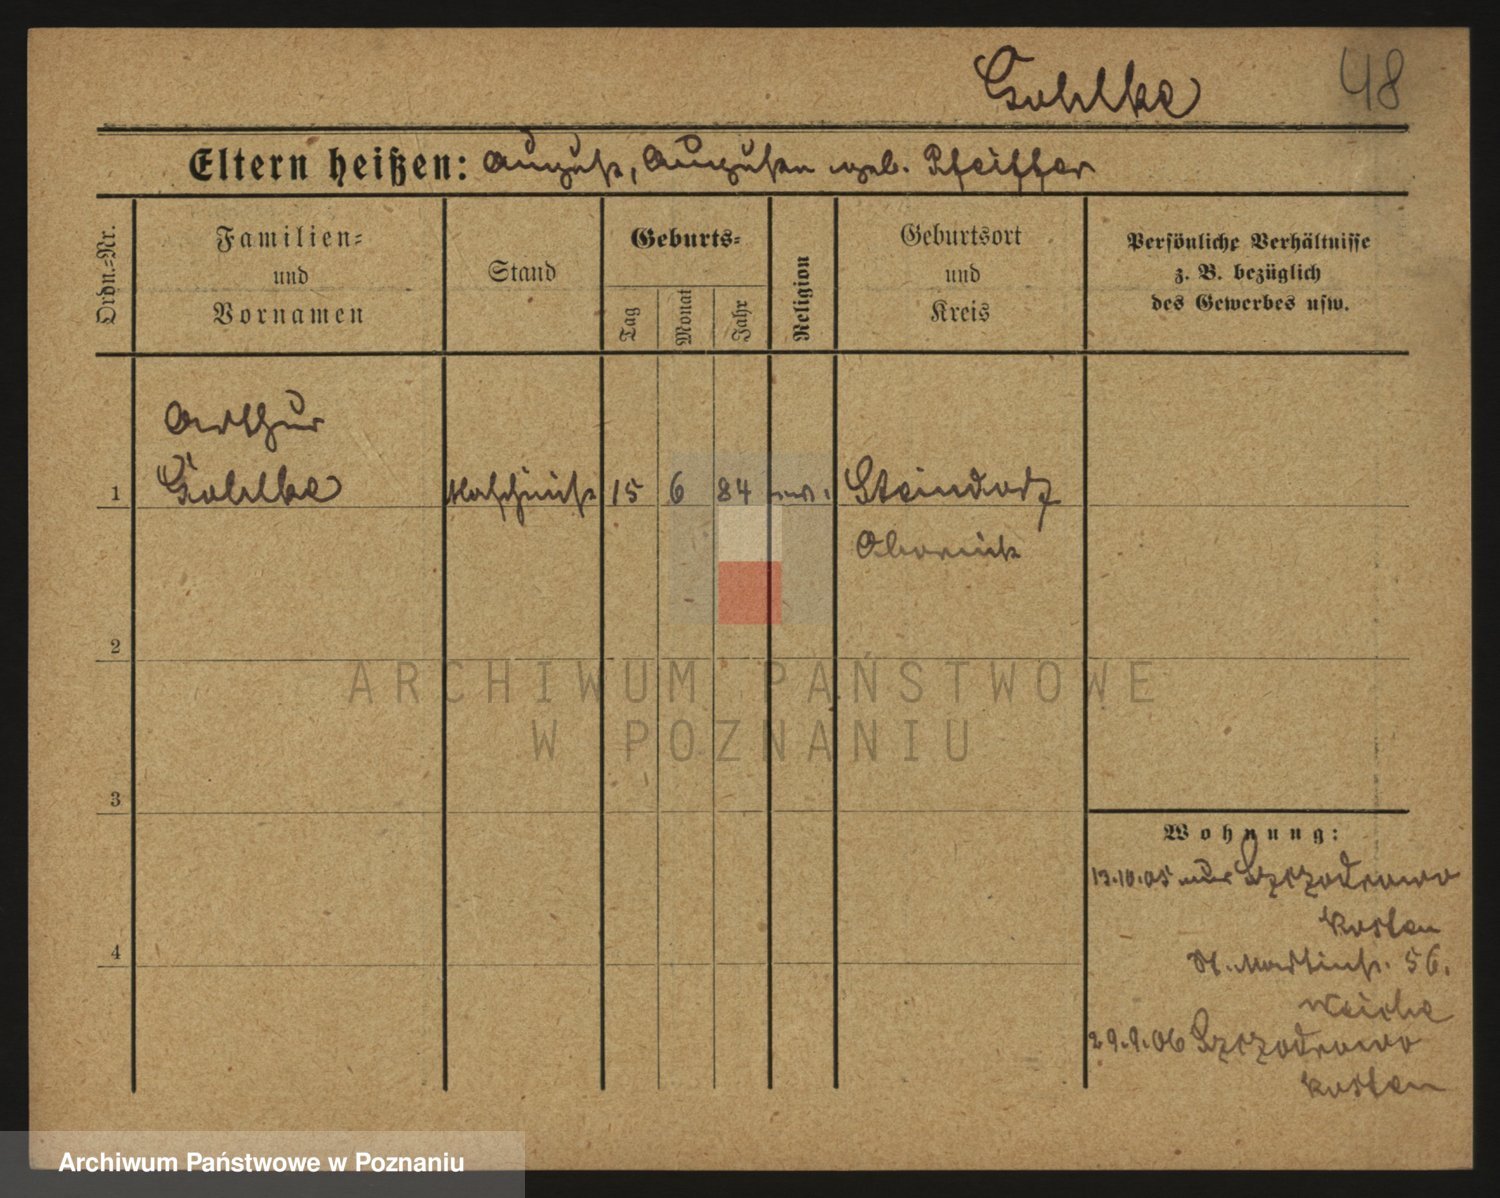 Gohlke 48
Eltern heißen: August, Auguste geb. Pfeiffer
Ordn.-Nr.
Familien-
und
Vornamen
Stand
Geburts-
Tag
Monat
Jahr
Religion
Geburtsort
und
Kreis
Persönliche Verhältnisse
z. B. bezüglich
des Gewerbes usw.
Arthur
1 Gohlke Maschinist 15 6 84 ev. Steindorf
Obornik
2
3
4
Wohnung:
13.10.05 aus Szczodrowo
Kosten
St. Martinstr. 56.
Weiche
29.9.06 Szczodrowo
Kosten
ARCHIWUM PAŃSTWOWE
W POZNANIU
Archiwum Państwowe w Poznaniu